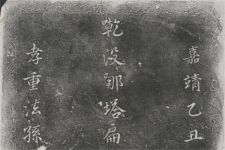 嘉靖乙丑
乾没那塔扁
孝重法孫